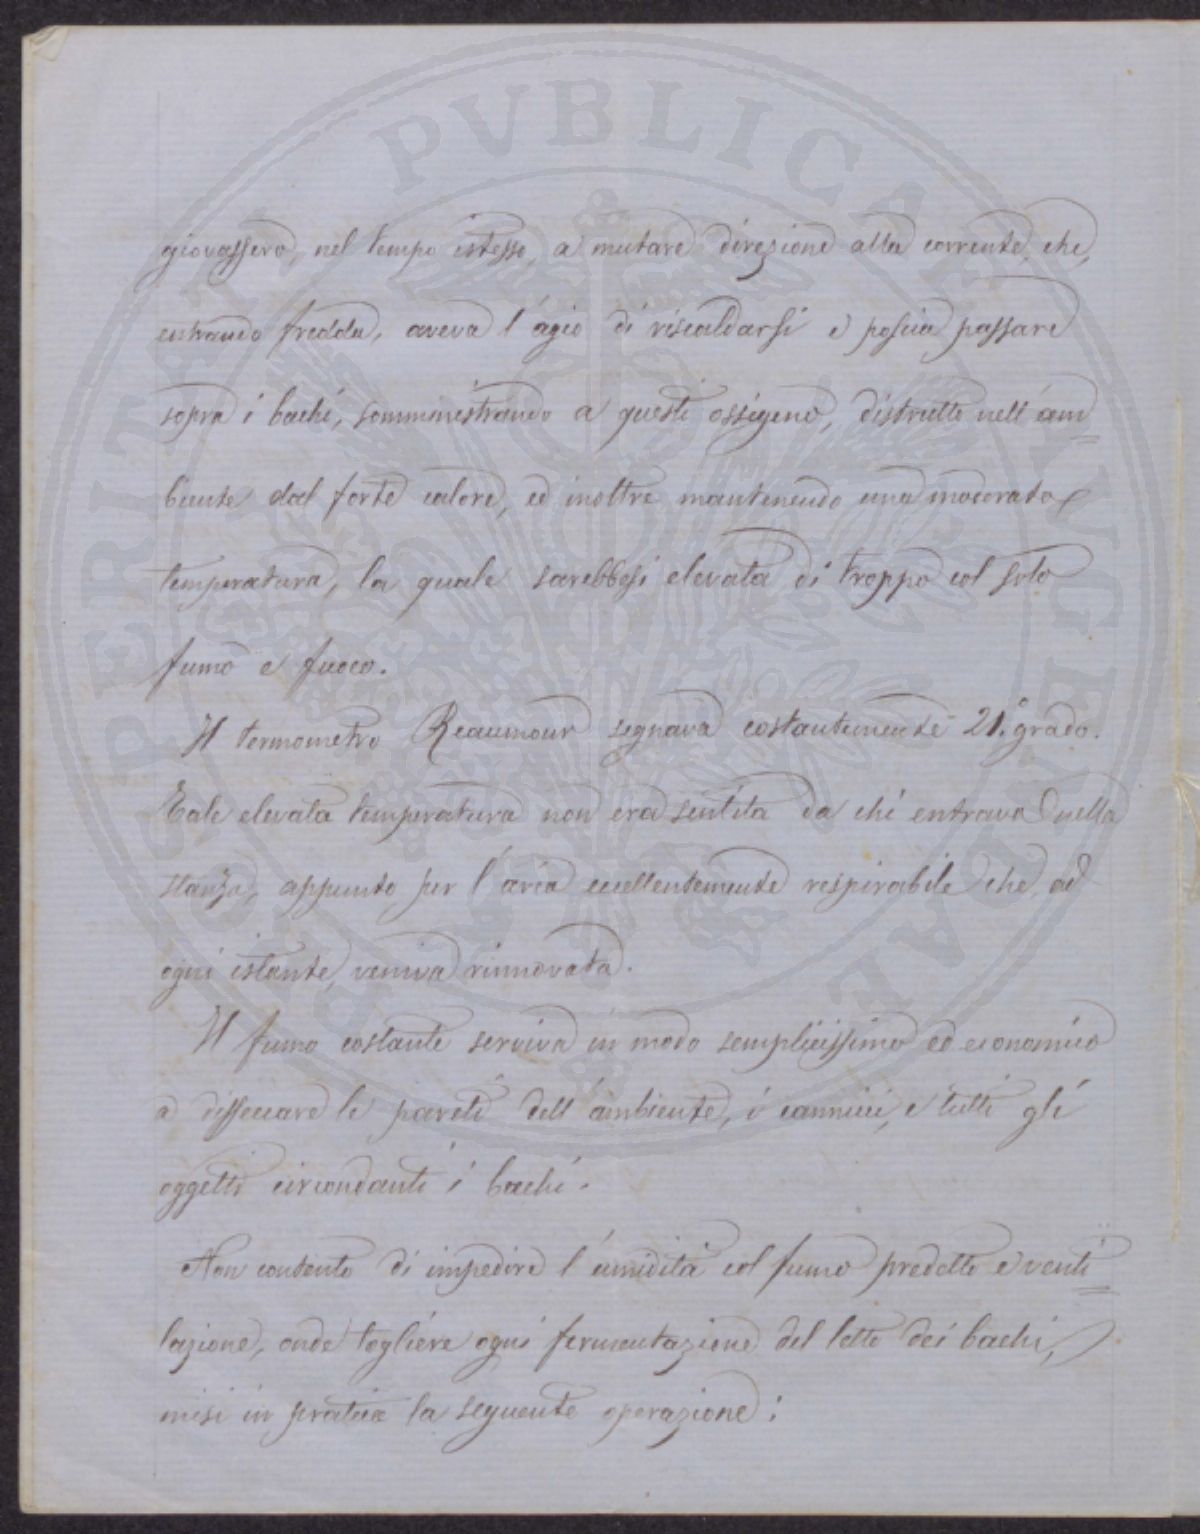 giovassero, nel tempo istesso, a mutare direzione alla corrente, che,
entrando fredda, aveva l'agio di riscaldarsi e poscia passare
sopra i bachi, somministrando a questi ossigeno, distrutto nell'am=
biente dal forte calore, ed inoltre mantenendo una moderata
temperatura, la quale sarebbesi elevata di troppo col solo
fumo e fuoco.
Il termometro Reaumour segnava costantemente 21.° grado.
Tale elevata temperatura non era sentita da chi entrava nella
stanza, appunto per l'aria eccellentemente respirabile che, ad
ogni istante, veniva rinnovata.
Il fumo costante serviva in modo semplicissimo ed economico
a disseccare le pareti dell'ambiente, i cannicci, e tutti gli
oggetti circondanti i bachi.
Non contento di impedire l'umidità col fumo predetto e venti=
lazione, onde togliere ogni fermentazione del letto dei bachi,
misi in pratica la seguente operazione:
PVBLICAE
PROSPERITATIS
AVGENDAE